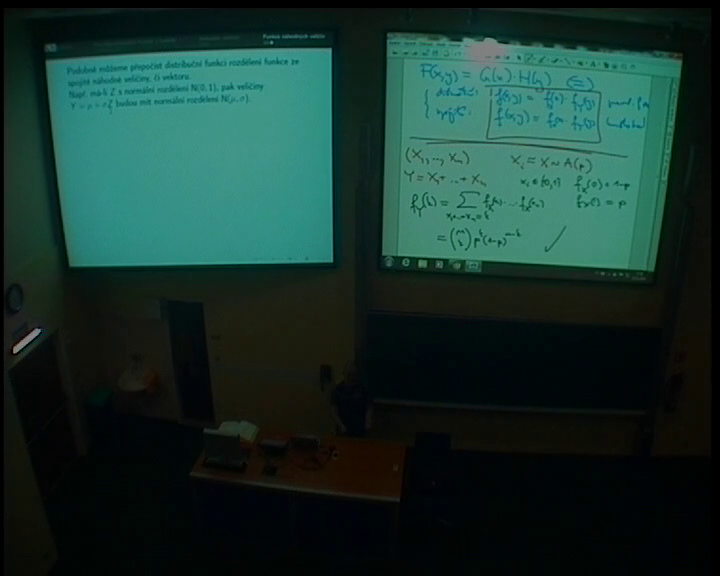 Funkce náhodných veličin
Podobně můžeme přepočíst distribuční funkci rozdělení funkce ze
spojité náhodné veličiny, či vektoru.
Např. má-li Z s normální rozdělení N(0, 1), pak veličiny
Y = μ + σZ budou mít normální rozdělení N(μ, σ).
F(x,y) = G(x) · H(y) ⇔
f(x,y) = f(x) · f_Y(y)
f(x,y) = f_X · f_Y(y)
(X_1, ..., X_n) X_i ~ X ~ A(p)
Y = X_1 + ... + X_n x_i ∈ {0,1} f_X(0) = 1-p
f_Y(k) = Σ f_X(x_1) ... f_X(x_n) f_X(1) = p
x_1+...+x_n = k
= (n k) p^k (1-p)^{n-k} ✓